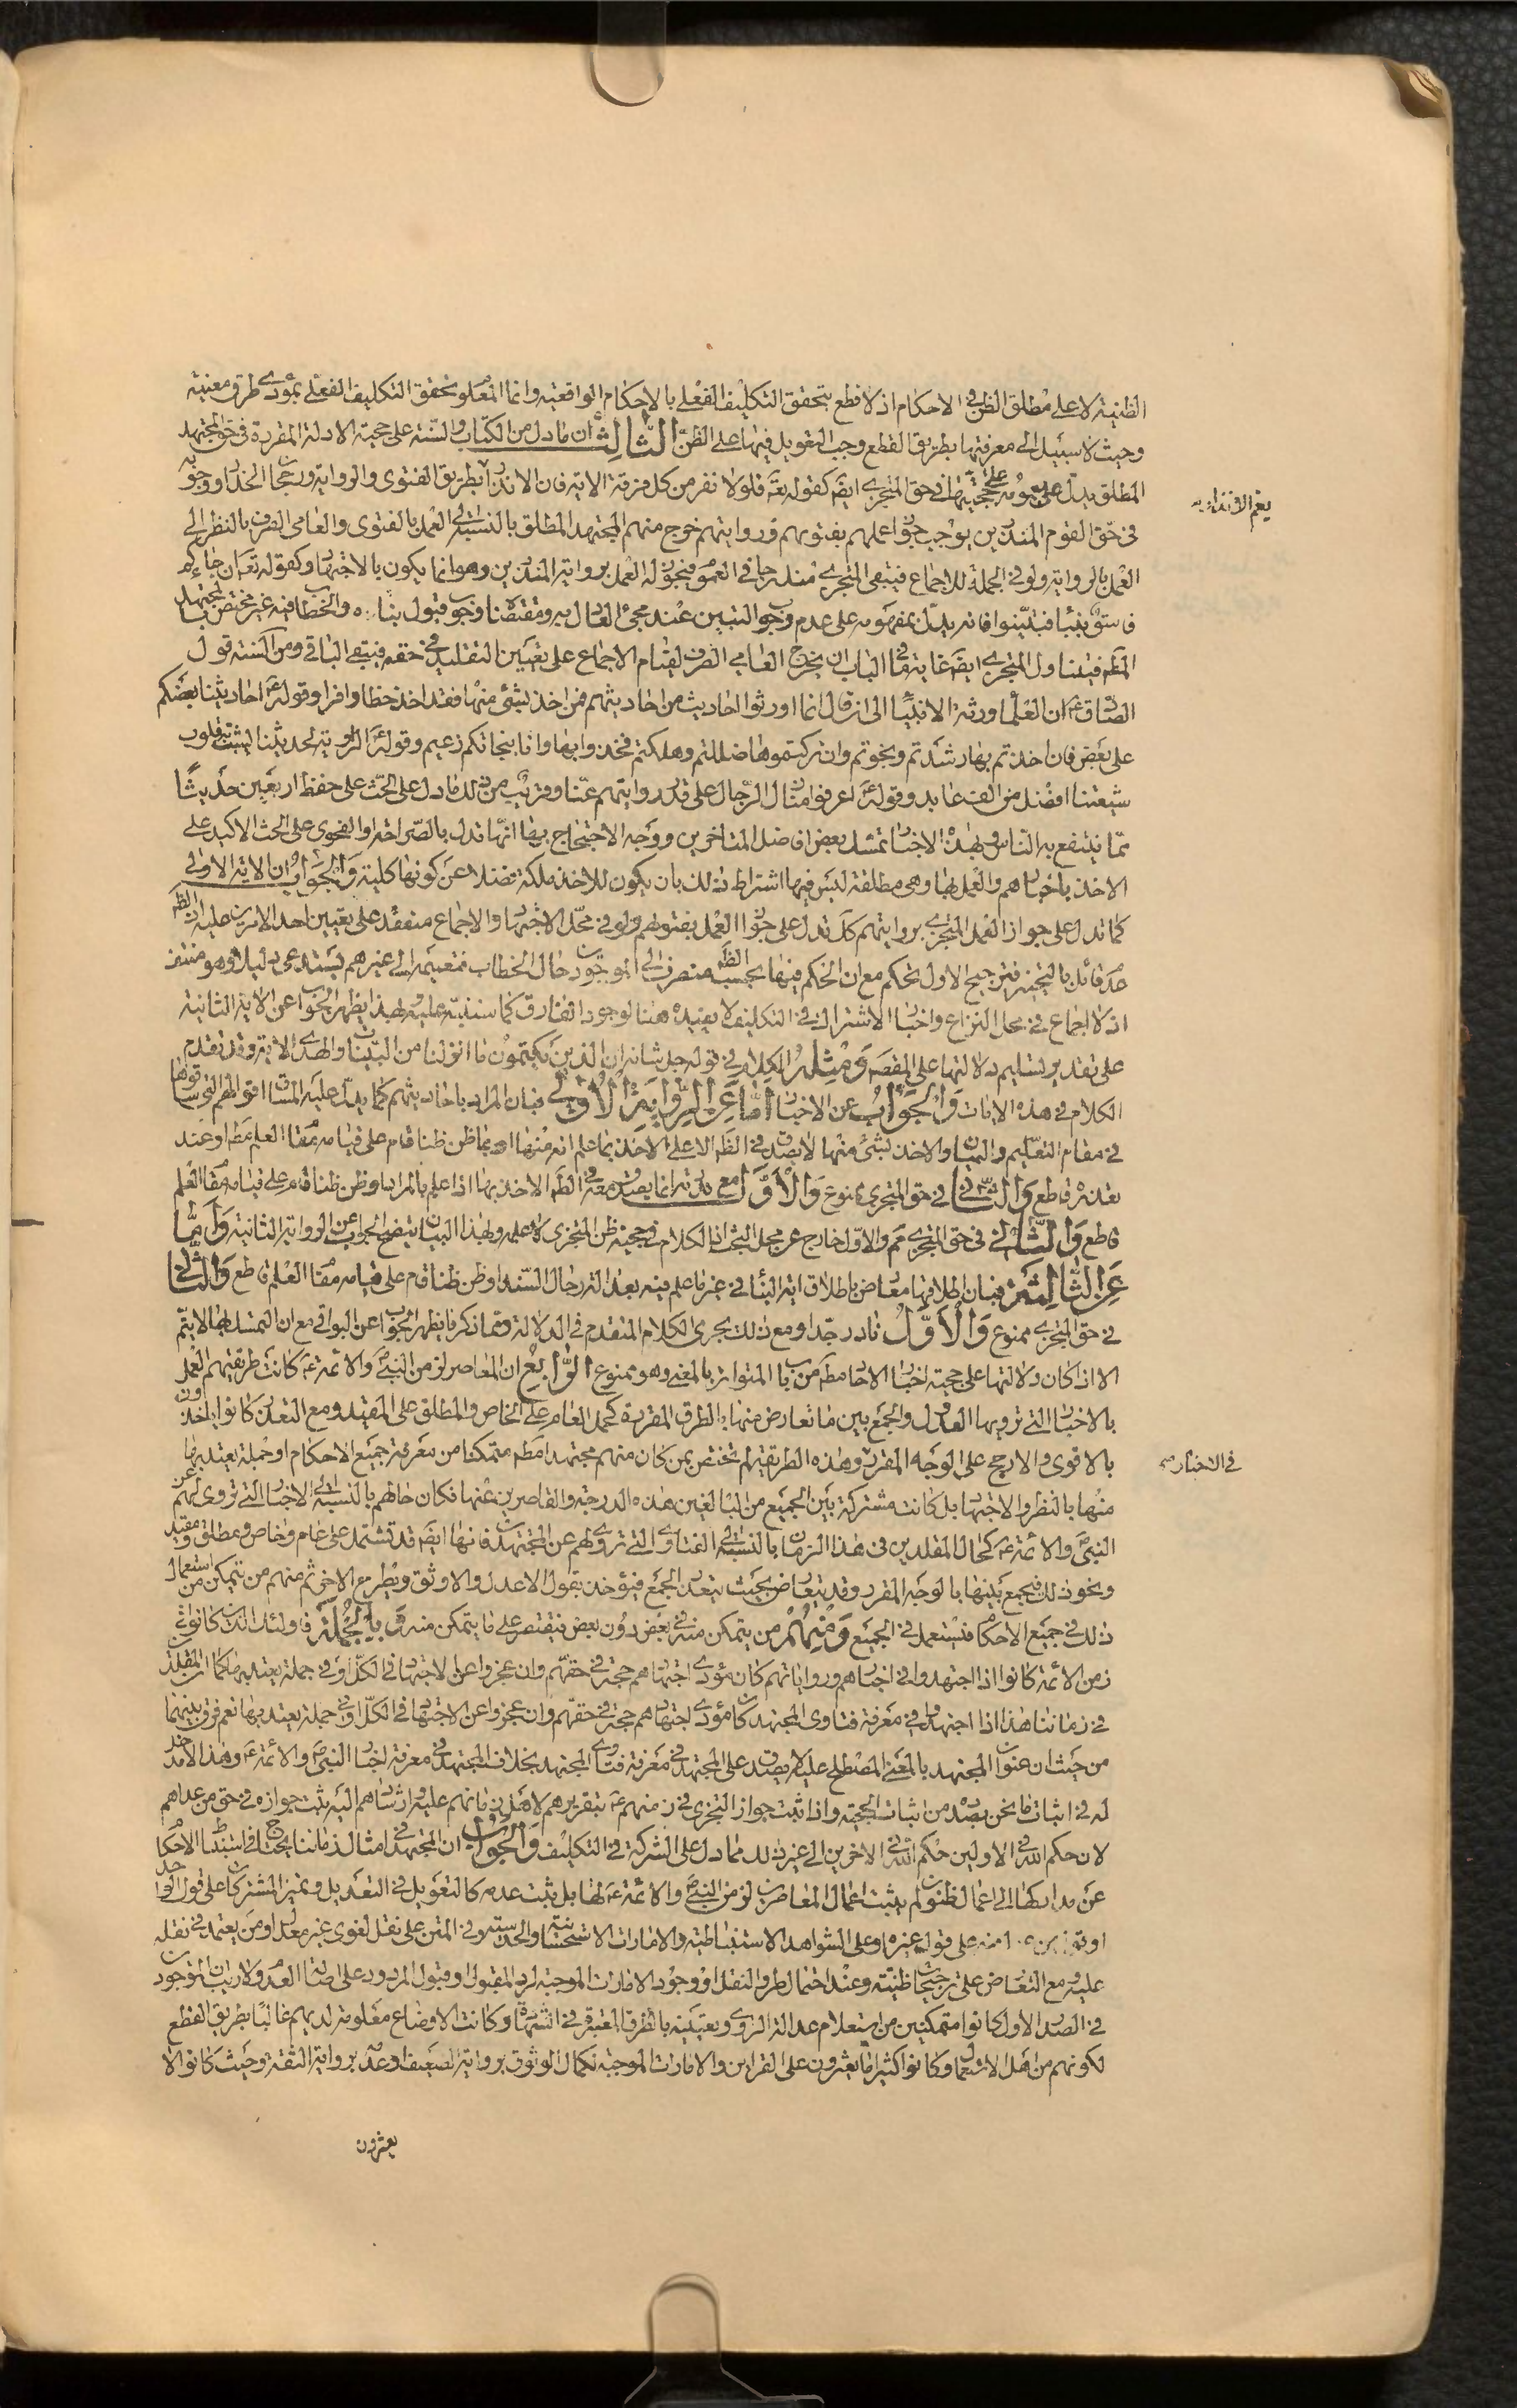 الظنية لا على مطلق الظن في الاحكام اذ لا قطع بتحقق التكليف الفعلي بالاحكام الواقعيه وانما المعلو تحقق التكليف الفعلي بمؤدى طرق معينة
وحيث لا سبيل الى معرفتها بطريق القطع وجب التعويل فيها على الظن الثالث ان ما دل من الكتاب والسنة على حجية الادلة المقررة في حق المجتهد
المطلق يدل على حجيتها في حق المتجزي ايضا كقوله تعالى فلولا نفر من كل فرقة الاية فان الانذار بطريق الفتوى والرواية
في حق القوم المنذرين يوجب جواز عملهم بفتويهم وروايتهم خرج منهم المجتهد المطلق بالنسبة الى العمل بالفتوى والعامي الصرف بالنظر الى
العمل بالرواية ولو في الجملة للاجماع فيبقى المتجزي مندرجا في العمو فيجوز له العمل برواية المنذرين وهو انما يكون بالاجتها وكقوله تعالى ان جاءكم
فاسق بنبأ فتبينوا فانه يدل بمفهومه على عدم وجوب التبين عند مجئ العدل به ومقتضا وجوب قبول والخطاب فيه غير مختص بالمجتهد
المطلق فيتناول المتجزي ايضا غاية ما في الباب ان يخرج العامي الصرف لقيام الاجماع على تعيين التقليد في حقه فيبقى الباقي ومن السنة قول
الصادق ع ان العلماء ورثة الانبياء الى ان قال انما اورثوا احاديث من احاديثهم فمن اخذ بشئ منها فقد اخذ حظا وافرا وقوله ع احاديثنا بعضكم
على بعض فان اخذتم بها رشدتم ونجوتم وان تركتموها ضللتم وهلكتم فخذوا بها وانا بنجاتكم زعيم وقوله ع الراوية لحديثنا يثبت به قلوب
شيعتنا افضل من الف عابد وقوله ع اعرفوا منازل الرجال على قدر روايتهم عنا وقريب من ذلك ما دل على الحث على حفظ اربعين حديثا
مما ينتفع به الناس وبهذه الاخبا تمسك بعض افاضل المتاخرين ووجه الاحتجاج بها انها تدل بالصراحة او الفحوى على الحث الاكيد على
الاخذ باخبارهم والعمل بها وهي مطلقة ليس فيها اشتراط ذلك بان يكون للاخذ ملكة فضلا عن كونها كلية والجواب ان الاية الاولى
كما تدل على جواز العمل المتجزي بروايتهم كذا تدل على جواز العمل بفتوىهم ولو في محل الاجتها والاجماع منعقد على تعيين احد الامرين عليه
فترجيح الاول تحكم مع ان الحكم فيها بحسب الظ منصرف الى الموجودين حال الخطاب فتعميمه الى غيرهم يستدعي دليلا وهو منتف
اذ لا اجماع في محل النزاع واخبا الاشتراك في التكليف لا يفيده هنا لوجود الفارق كما سننبه عليه وبهذا يظهر الجواب عن الاية الثانية
على تقدير تسليم دلالتها على المقصد ومثله الكلام في قوله جل شانه ان الذين يكتمون ما انزلنا من البينات والهدى الاية وقد تقدم
الكلام في هذه الايات والجواب عن الاخبار اما عن الرواية الاولى فبان المراد باحاديثهم كما يدل عليه
في مقام التعليم والبيان والاخذ بشئ منها لا يصدق في الظ الا على الاخذ بما علم انه منها او بما ظن ظنا قام على قيامه مقام العلم مطلقا او عند
تعذره قاطع والثاني في حق المتجزي ممنوع والاول مع ندرته انما يصدق معه في الظ الاخذ بها اذا علم بالمراد او ظن ظنا قام على قيامه مقام العلم
قاطع والثاني في حق المتجزي مم والاول خارج عن محل البحث اذ الكلام في حجية ظن المتجزي لا علمه وبهذا البيان يتضح الجواب عن الرواية الثانية واما
عن الثالثة فبان اطلاقها معارض باطلاق اية النبأ في غير ما علم فيه بعدالة رجال السند او ظن ظنا قام على قيامه مقام العلم قاطع والثاني
في حق المتجزي ممنوع والاول نادر جدا ومع ذلك يجري الكلام المتقدم في الدلالة ومما ذكر نا يظهر الجواب عن البواقي مع ان التمسك بها لا يتم
الا اذا كان دلالتها على حجية اخبا الاحا مط من باب المتواتر بالمعنى وهو ممنوع الرابع ان المعاصر لزمن النبي ص والائمة ع كانت طريقتهم العمل
بالاخبا التي ترويها العدول والجمع بين ما تعارض منها بالطرق المقررة كحمل العام على الخاص والمطلق على المقيد ومع التعذر كانوا ياخذون
بالاقوى والارجح على الوجه المقرر وهذه الطريقة لم تختص بمن كان منهم مجتهدا مط متمكنا من معرفة جميع الاحكام او جملة يعتد بها
منها بالنظر والاجتها بل كانت مشتركة بين الجميع من البالغين هذه الدرجة والقاصرين عنها فكان حالهم بالنسبة الى الاخبا التي تروى لهم عن
النبي ص والائمة ع كحال المقلدين في هذا الزمان بالنسبة الى الفتاوى التي تروى لهم عن المجتهد فانها ايضا قد تشتمل على عام وخاص ومطلق ومقيد
ونحو ذلك فيجمع بينها بالوجه المقرر وقد يتعارض بحيث يتعذر الجمع فيؤخذ بقول الاعدل والاوثق ويطرح الاخر ثم منهم من يتمكن من استعمال
ذلك في جميع الاحكام فيستعمل في الجميع ومنهم من يتمكن منه في بعض دون بعض فيقتصر على ما يتمكن منه وبالجملة فاولئك الذين كانوا في
زمن الائمة كانوا اذا اجتهدوا في اخبارهم ورواياتهم كان مؤدى اجتهادهم حجة في حقهم وان عجزوا عن الاجتها في الكل او في جملة يعتد بها كما ان المقلد
في زماننا هذا اذا اجتهدوا في معرفة فتاوى المجتهد كان مؤدى اجتهادهم حجة في حقهم وان عجزوا عن الاجتها في الكل او في جملة يعتد بها نعم فرق بينهما
من حيث ان عنوان المجتهد بالمعنى المصطلح عليه لا يصدق على المجتهد في معرفة فتاوى المجتهد بخلاف المجتهد في معرفة اخبا النبي ص والائمة ع وهذا لا مدخل
له في اثبات ما نحن بصدد من اثبات الحجية واذا ثبت جواز التجزي في زمنهم ع بتقريرهم لاهل زمانهم عليه وارشادهم اليه يثبت جوازه في حق من عداهم
لان حكم الله في الاولين حكم الله في الاخرين الى غير ذلك مما دل على الشركة في التكليف والجواب ان المجتهد في امثال زماننا يحتاج في استنباط الاحكام
عن مداركها الى اعمال ظنون لم يثبت اعمال المعاصرين لزمن النبي ص والائمة ع لها بل يثبت عدمه كالتعويل في التعديل وتميز المشتركات على قول الواحد
على قول غيره او على الشواهد الاستنباطية والامارات الاستحسانية والحدسية وفي المتن على نقل لغوي غير معدل او من يعتمد في نقله
عليه ومع التعارض على ترجيحات ظنية وعند احتمال طرو النقل او وجود الامارات الموجبة لرد المقبول او قبول المردود على اصالة العدم ولا ريب ان الموجودين
في الصدر الاول كانوا متمكنين من استعلام عدالة الراوي وتعيينه بالطرق المعتبرة في الشهادة وكانت الاوضاع معلومة لديهم غالبا بطريق القطع
لكونهم من اهل الاستعمال وكانوا كثيرا ما يعثرون على القراين والامارات الموجبة لكمال الوثوق برواية الضعيف او عدمه برواية الثقة وحيث كانوا لا
يعثرون
يعم الانذار به
في الاخبار صح